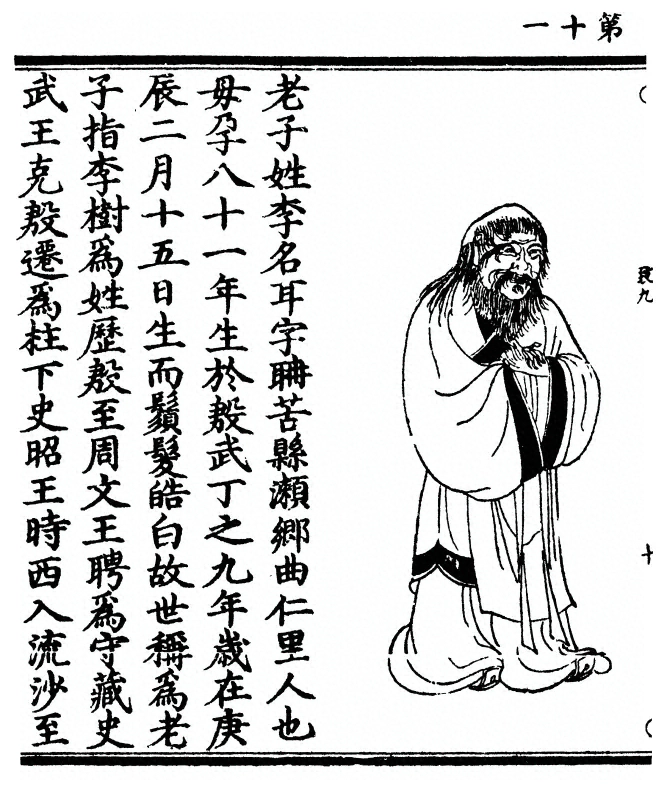 第十一
老子姓李名耳字聃苦縣瀨鄉曲仁里人也
母孕八十一年生於殷武丁之九年歲在庚
辰二月十五日生而鬚髮皓白故世稱爲老
子指李樹爲姓歷殷至周文王聘爲守藏史
武王克殷遷爲柱下史昭王時西入流沙至